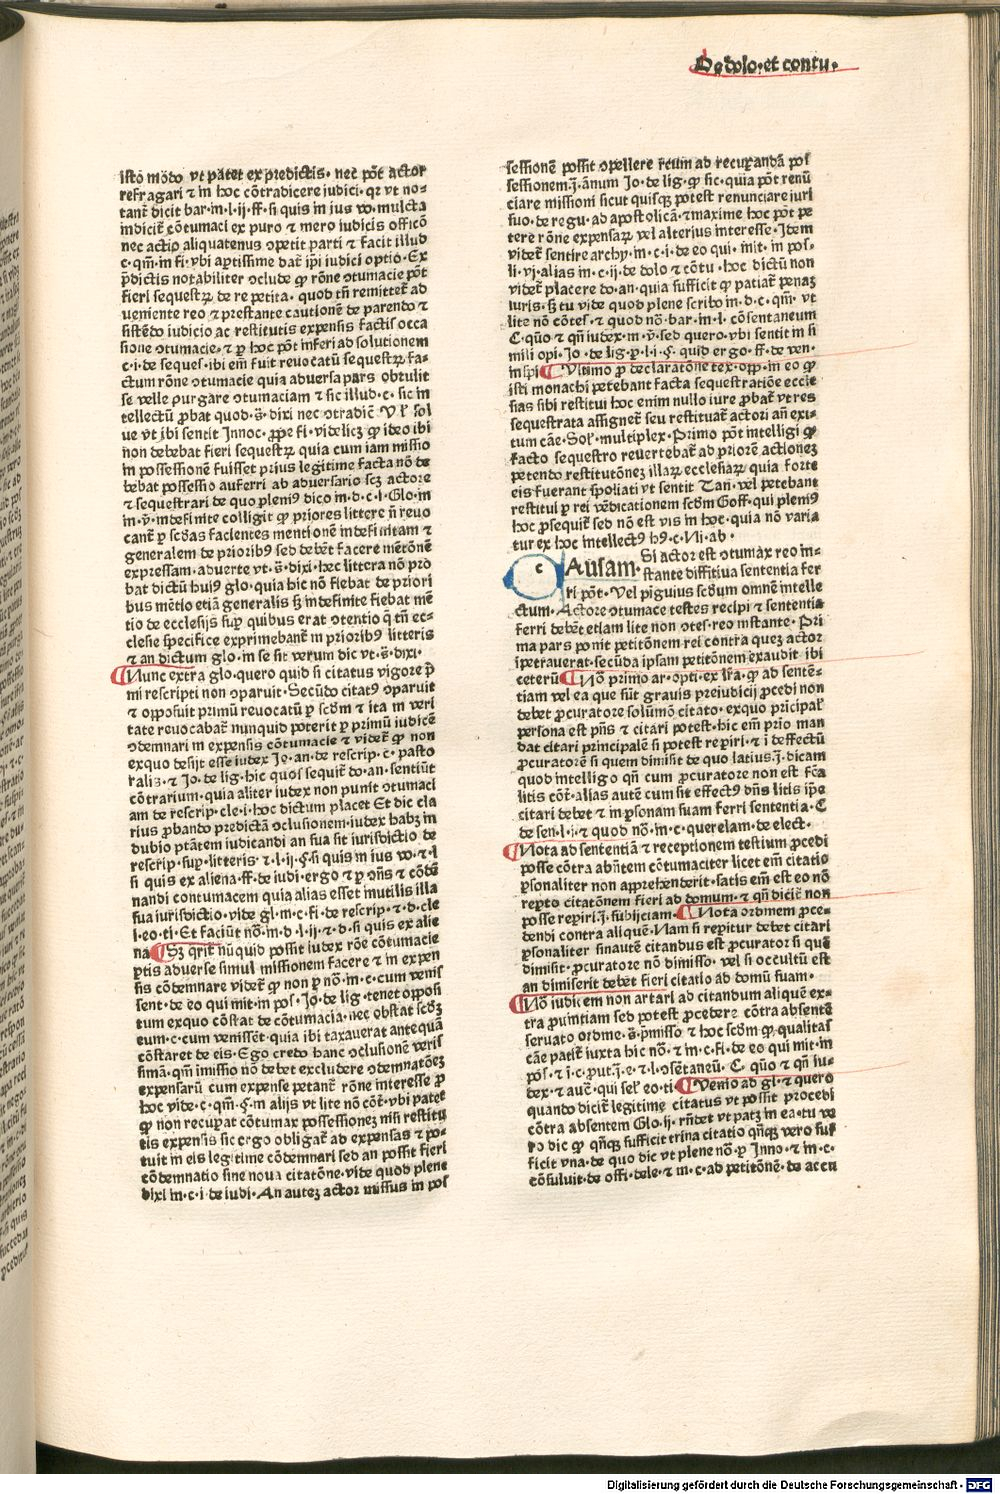 De dolo·et contu·
isto modo vt patet ex predictis· nec pōt actor
refragari ⁊ in hoc cōtradicere iudici· qꝛ vt no-
tant̄ dicit bar·in·l·ij·ff·si quis in ius vo·mulcta
indicit̄ cōtumaci ex puro ⁊ mero iudicis officō
nec actio aliquatenus ɔpetit parti ⁊ facit illud
c·qm̄·in fi·vbi aptissime dat̄ ip̄i iudici optio·Ex
p̄dictis notabiliter ɔclude ꝙ rōne ɔtumacie pōt
fieri sequestrꝝ de re petita· quod tn̄ remittet̄ ad
ueniente reo ⁊ prestante cautionē de parendo ⁊
sistēdo iudicio ac restitutis expensis factis occa
sione ɔtumacie·⁊ ꝑ hoc pōt inferi ad solutionem
c·i·de seques·ibi em̄ fuit reuocatū sequestrꝝ fa-
ctum rōne ɔtumacie quia aduersa pars obtulit
se velle purgare ɔtumaciam ⁊ sic illud·c·sic in
tellectū ꝓbat quod·s̄·dixi nec ɔtradic̄ Vl̓ sol
ue vt ibi sentit Innoc·ꝓpe fi·videlicꝫ ꝙ ideo ibi
non debebat fieri sequestrꝝ quia cum iam missio
in possessionē fuisset prius legitime facta nō de
bebat possessio auferri ab aduersario scꝫ actore
⁊ sequestrari de quo pleniꝰ dico in·d·c·i·Glo·in
in·v̄·indefinite colligit ꝙ priores littere n̄ reuo
cant̄ ꝑ scd̓as facientes mentionē indefinitam ⁊
generalem de prioribꝰ sed debēt facere mētōnē
expressam·aduerte vt·s̄·dixi·hec littera nō pro
bat dictū huiꝰ glo·quia hic nō fiebat de priori
bus mētio etiā generalis sꝫ indefinite fiebat mē
tio de ecclesijs suꝑ quibus erat ɔtentio q̄ tn̄ ec-
clesie specifice exprimebant̄ in prioribꝰ litteris
⁊ an dictum glo·in se sit verum dic vt·s̄·dixi·
¶Nunc extra glo·quero quid si citatus vigore p̄
mi rescripti non ɔparuit·Secūdo citatꝰ ɔparuit
⁊ opposuit primū reuocatū ꝑ scd̓m ⁊ ita in veri
tate reuocabat̄ nunquid poterit ꝑ primū iudicē
ɔdemnari in expensis cōtumacie ⁊ videt̄ ꝙ non
exquo desijt esse iudex Io·an·de rescrip·c·pasto
ralis·⁊ Jo·de lig·hic quos sequit̄ do·an·sentiūt
cōtrarium·quia aliter iudex non punit ɔtumaci
am de rescrip·cle·i·hoc dictum placet Et dic cla
rius ꝓbando predictā ɔclusionem·iudex habꝫ in
dubio ptātem iudicandi an sua sit iurisdictio de
rescrip·suꝑ·litteris·⁊·l·ij·§·si quis in ius vo·⁊·l
si quis ex aliena·ff·de iudi·ergo ⁊ ꝑ ɔn̄s ⁊ cōdē
nandi contumacem quia alias esset inutilis illa
sua iurisdictio·vide gl·in·c·fi·de rescrip·⁊·d·cle
i·eo·ti·Et faciūt nō·in·d·l·ij·⁊·d·si quis ex alie
na ¶Sꝫ qrit̄ nūquid possit iudex rōe cōtumacie
ꝑtis aduerse simul missionem facere ⁊ in expen
sis cōdemnare videt̄ ꝙ non ꝑ nō·in·c·cum venis
sent·de eo qui mit·in pos·Jo·de lig·tenet opposi
tum exquo cōstat de cōtumacia·nec obstat scd̓ꝫ
eum·c·cum venissēt·quia ibi taxauerat antequā
cōstaret de eis·Ego credo hanc ɔclusionē veris
simā·qm̄ missio nō debet excludere ɔdemnatōeꝫ
expensarū cum expense petant̄ rōne interesse ꝓ
hoc vide·c·qm̄·§·in alijs vt lite nō cōt̄·vbi patet
ꝙ non recuꝑat cōtumax possessioneꝫ nisi restitu
tis expensis sic ergo obligat̄ ad expensas ⁊ po-
tuit in eis legitime cōdemnari sed an possit fieri
cōdemnatio sine noua citatōne·vide quod plene
dixi in·c·i·de iudi·An auteꝫ actor missus in pos
sessionē possit ɔpellere reum ad recuꝑandā pos
sessionem·ī·ānum Jo·de lig·ꝙ sic·quia pōt renū
ciare missioni sicut quisqꝫ potest renunciare iuri
suo·de regu·ad apostolicā·⁊ maxime hoc pōt pe
tere rōne expensaꝝ vel alterius interesse·Idem
videt̄ sentire archy·in·c·i·de eo qui·mit·in pos-
li·vj·alias in·c·ij·de dolo ⁊ cōtu·hoc dictū non
videt̄ placere do·an·quia sufficit ꝙ patiat̄ penaꝫ
iuris·sꝫ tu vide quod plene scribo in·d·c·qm̄·vt
lite nō cōtes·⁊ quod nō·bar·in·l·cōsentaneum
C·quō ⁊ qn̄ iudex·in·v̄·sed quero·vbi sentit in si
mili opi·Jo·de lig·ꝑ·l·i·§·quid ergo·ff·de ven·
inspi ¶Vltimo ꝓ declaratōne tex·opp·in eo ꝙ
isti monachi petebant facta sequestratiōe eccle
sias sibi restitui hoc enim nullo iure ꝓbat̄ vt res
sequestrata assignet̄ seu restituat̄ actori an̄ exi-
tum cāe·Sol̓·multiplex·Primo pōt intelligi ꝙ
facto sequestro reuertebat̄ ad priorē actioneꝫ
petendo restitutōneꝫ illaꝝ ecclesiaꝝ quia forte
eis fuerant spoliati vt sentit Tan·vel petebant
restitui ꝑ rei vēdicationem scd̓m Goff·qui pleniꝰ
hoc ꝓsequit̄ sed nō est vis in hoc·quia nō varia
tur ex hoc intellectꝰ hꝰ·c·Ni·ab·
c Ausam· Si actor est ɔtumax reo in-
stante diffitiua sententia fer
ri pōt·Vel pinguius scd̓um omnē intelle
ctum·Actore ɔtumace testes recipi ⁊ sententia
ferri debēt etiam lite non ɔtes·reo instante·Pri
ma pars ponit petitōnem rei contra queꝫ actor
īpetrauerat·secūda ipsam petitōnem exaudit ibi
ceterū ¶Nō primo ar·opti·ex lr̄a·ꝙ ad senten-
tiam vel ea que sūt grauis preiudicij ꝓcedi non
debet ꝓcuratore solūmō citato·exquo pricipal̓
persona est pn̄s ⁊ citari potest·hic em̄ prio man
dat citari principalē si potest reꝑiri·⁊ i deffectū
ꝓcuratorē si quem dimisit de quo latius·ī·dicam
quod intelligo qn̄ cum ꝓcuratore non est fc̄a
litis cōt̄·alias autē cum sit effectꝰ dn̄s litis ip̄e
citari debet ⁊ in ꝑsonam suam ferri sententia·C
de sen·l·i·⁊ quod nō·in·c·querelam·de elect·
¶Nota ad sententiā ⁊ receptionem testium ꝓcedi
posse cōtra abn̄tem cōtumaciter licet em̄ citatio
ꝑsonaliter non apprehenderit·satis em̄ est eo nō
reꝑto citatōnem fieri ad domum·⁊ qn̄ dicit̄ non
posse reꝑiri·ī·subijciam·¶Nota ordinem ꝓce-
dendi contra aliquē·Nam si reꝑitur debet citari
ꝑsonaliter sinautē citandus est ꝓcurator si quē
dimisit·ꝓcuratore nō dimisso·vel si occultū est
an dimiserit debet fieri citatio ad domū suam·
¶Nō iudicem non artari ad citandum aliquē ex-
tra ꝓuintiam sed potest ꝓcedere cōtra absentē
seruato ordine·s̄·p̄misso ⁊ hoc scd̓m ꝙ qualitas
cāe patit̄ iuxta hic nō·⁊ in·c·fi·de eo qui mit·in
pos·⁊·i·c·put·ī·e·⁊·l·ɔsētaneū·C·quō ⁊ qn̄ iu-
dex·⁊ auc̄·qui sel̓·eo·ti ¶Venio ad gl·⁊ quero
quando dicit̄ legitime citatus vt possit procedi
cōtra absentem Glo·ij·rn̄det vt patꝫ in ea·tu ve
ro dic ꝙ qn̄qꝫ sufficit trina citatio qn̄qꝫ vero suf
ficit vna·de quo dic vt plene nō·ꝑ Inno·⁊ in·c·
cōsuluit·de offi·dele·⁊ in·c·ad petitōnē·de accu
Digitalisierung gefördert durch die Deutsche Forschungsgemeinschaft · DFG